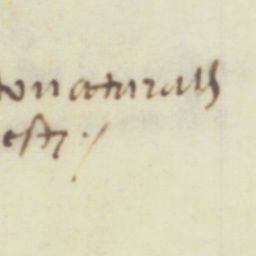 tonaturalis
est